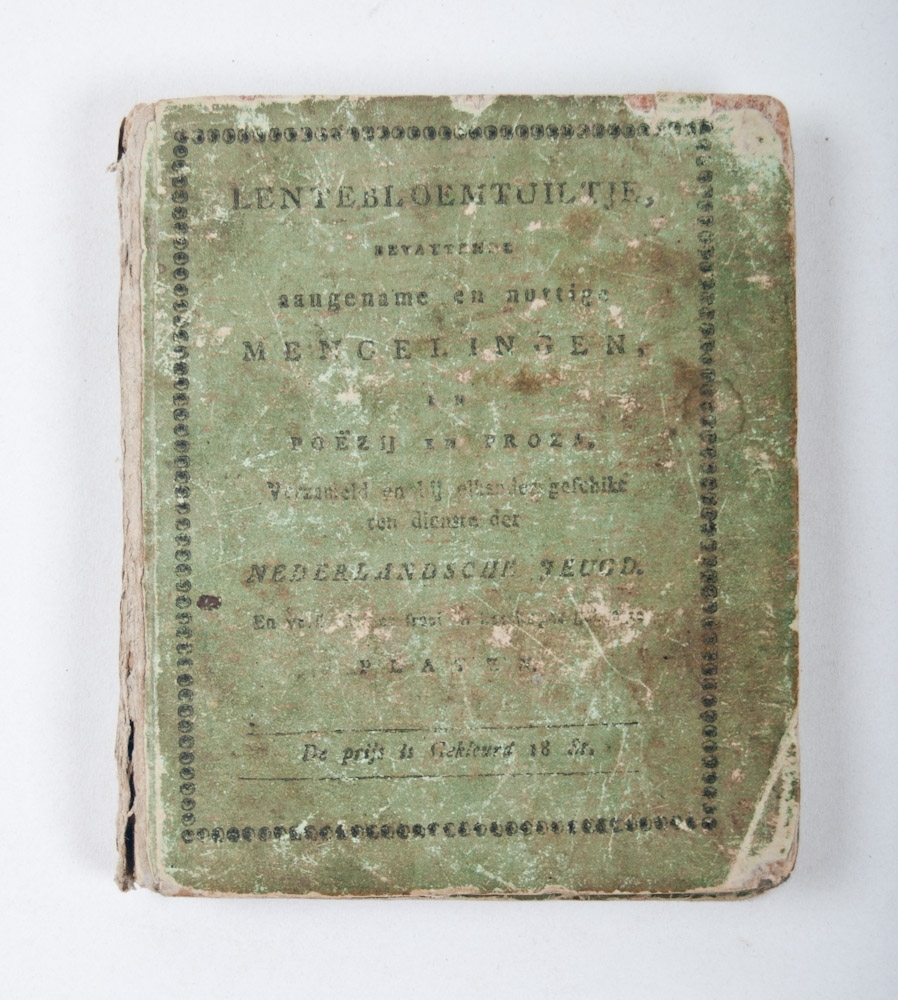 LENTEBLOEMTUILTJE,
BEVATTENDE
aangename en nuttige
MENGELINGEN,
IN
POËZIJ EN PROZA,
Verzameld en bij elkander geschikt
ten dienste der
NEDERLANDSCHE JEUGD.
En fraai
PLATEN.
De prijs is Gekleurd 18 St.